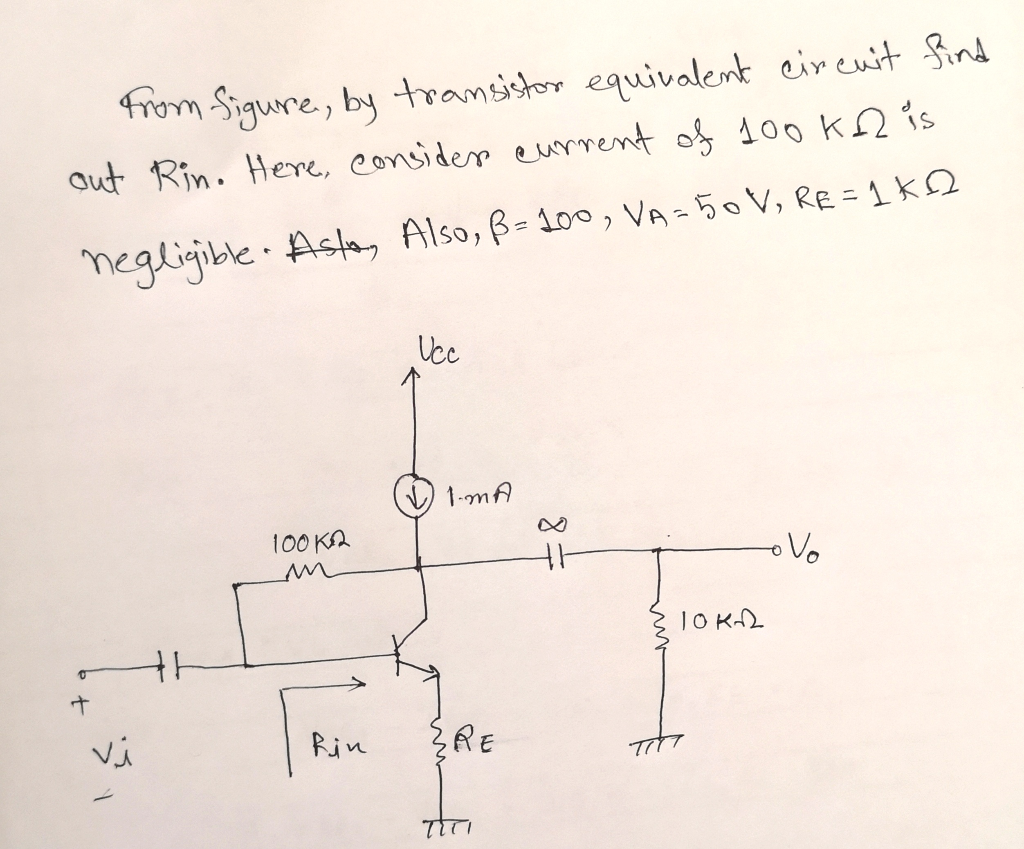 From figure, by transistor equivalent circuit find
out Rin. Here, consider current of 100 KΩ is
negligible. Also, β=100, VA=50V, RE=1KΩ
Vcc
1-mA
100KΩ
∞
Vo
10KΩ
+
Vi
-
Rin
RE